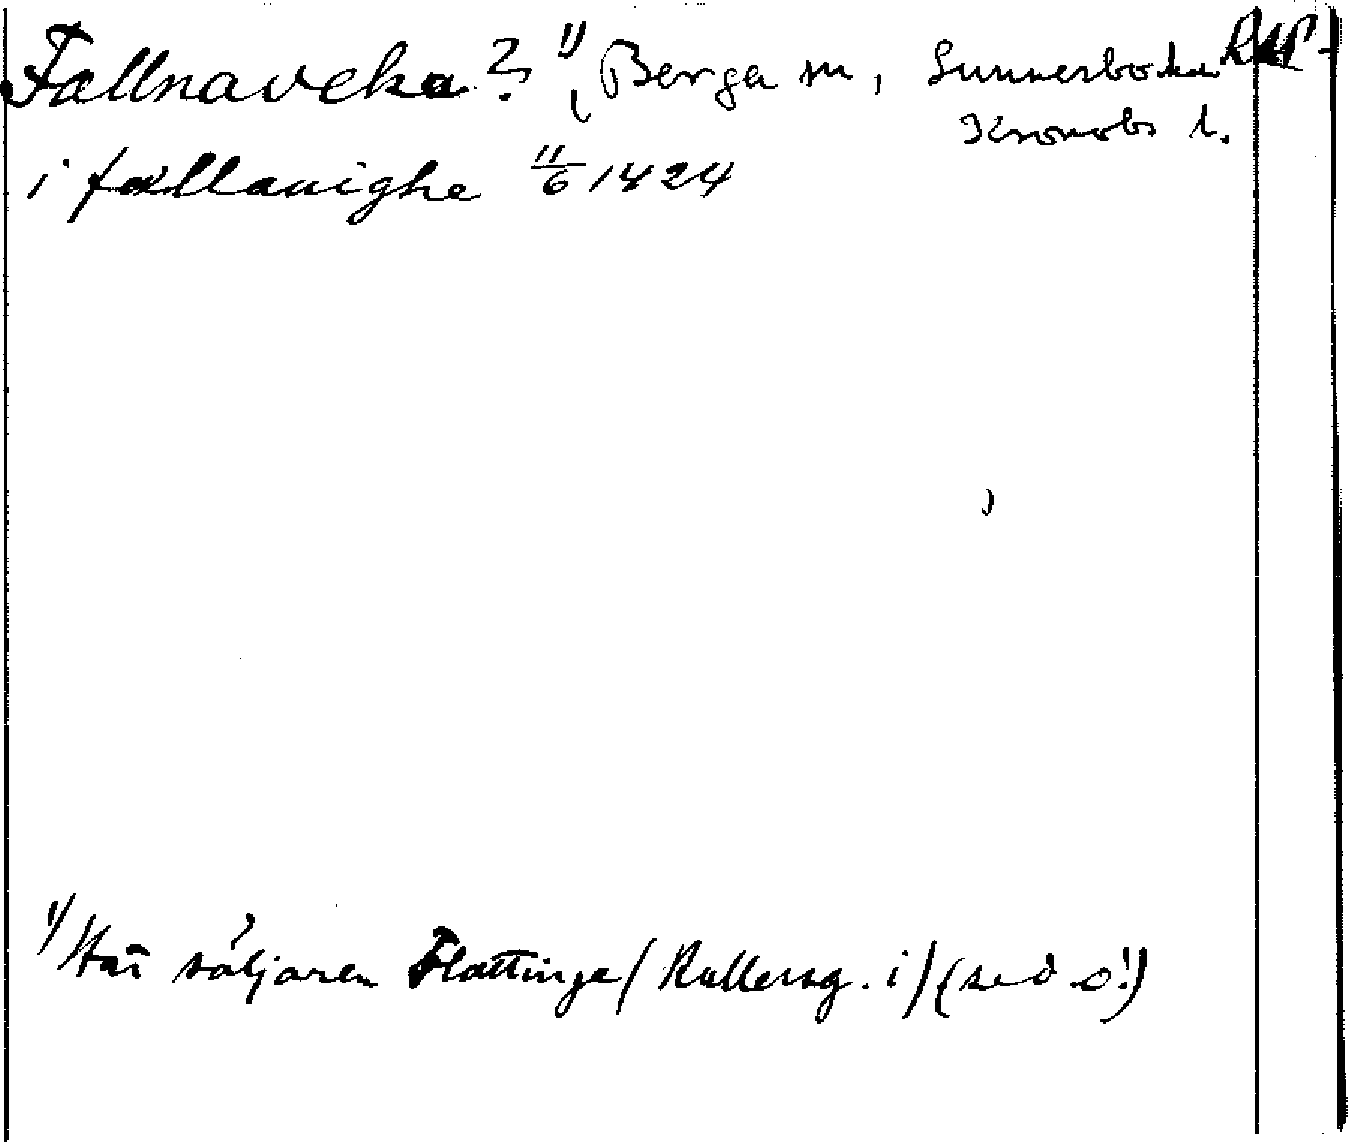 Fallnaveka? 1) Berga sn, Sunnerbo hd RAP
Kronobs l.
i fællauighe 11/6 1424
1) Här säljaren Flattinge (Kallersg. i) (se d. o!)